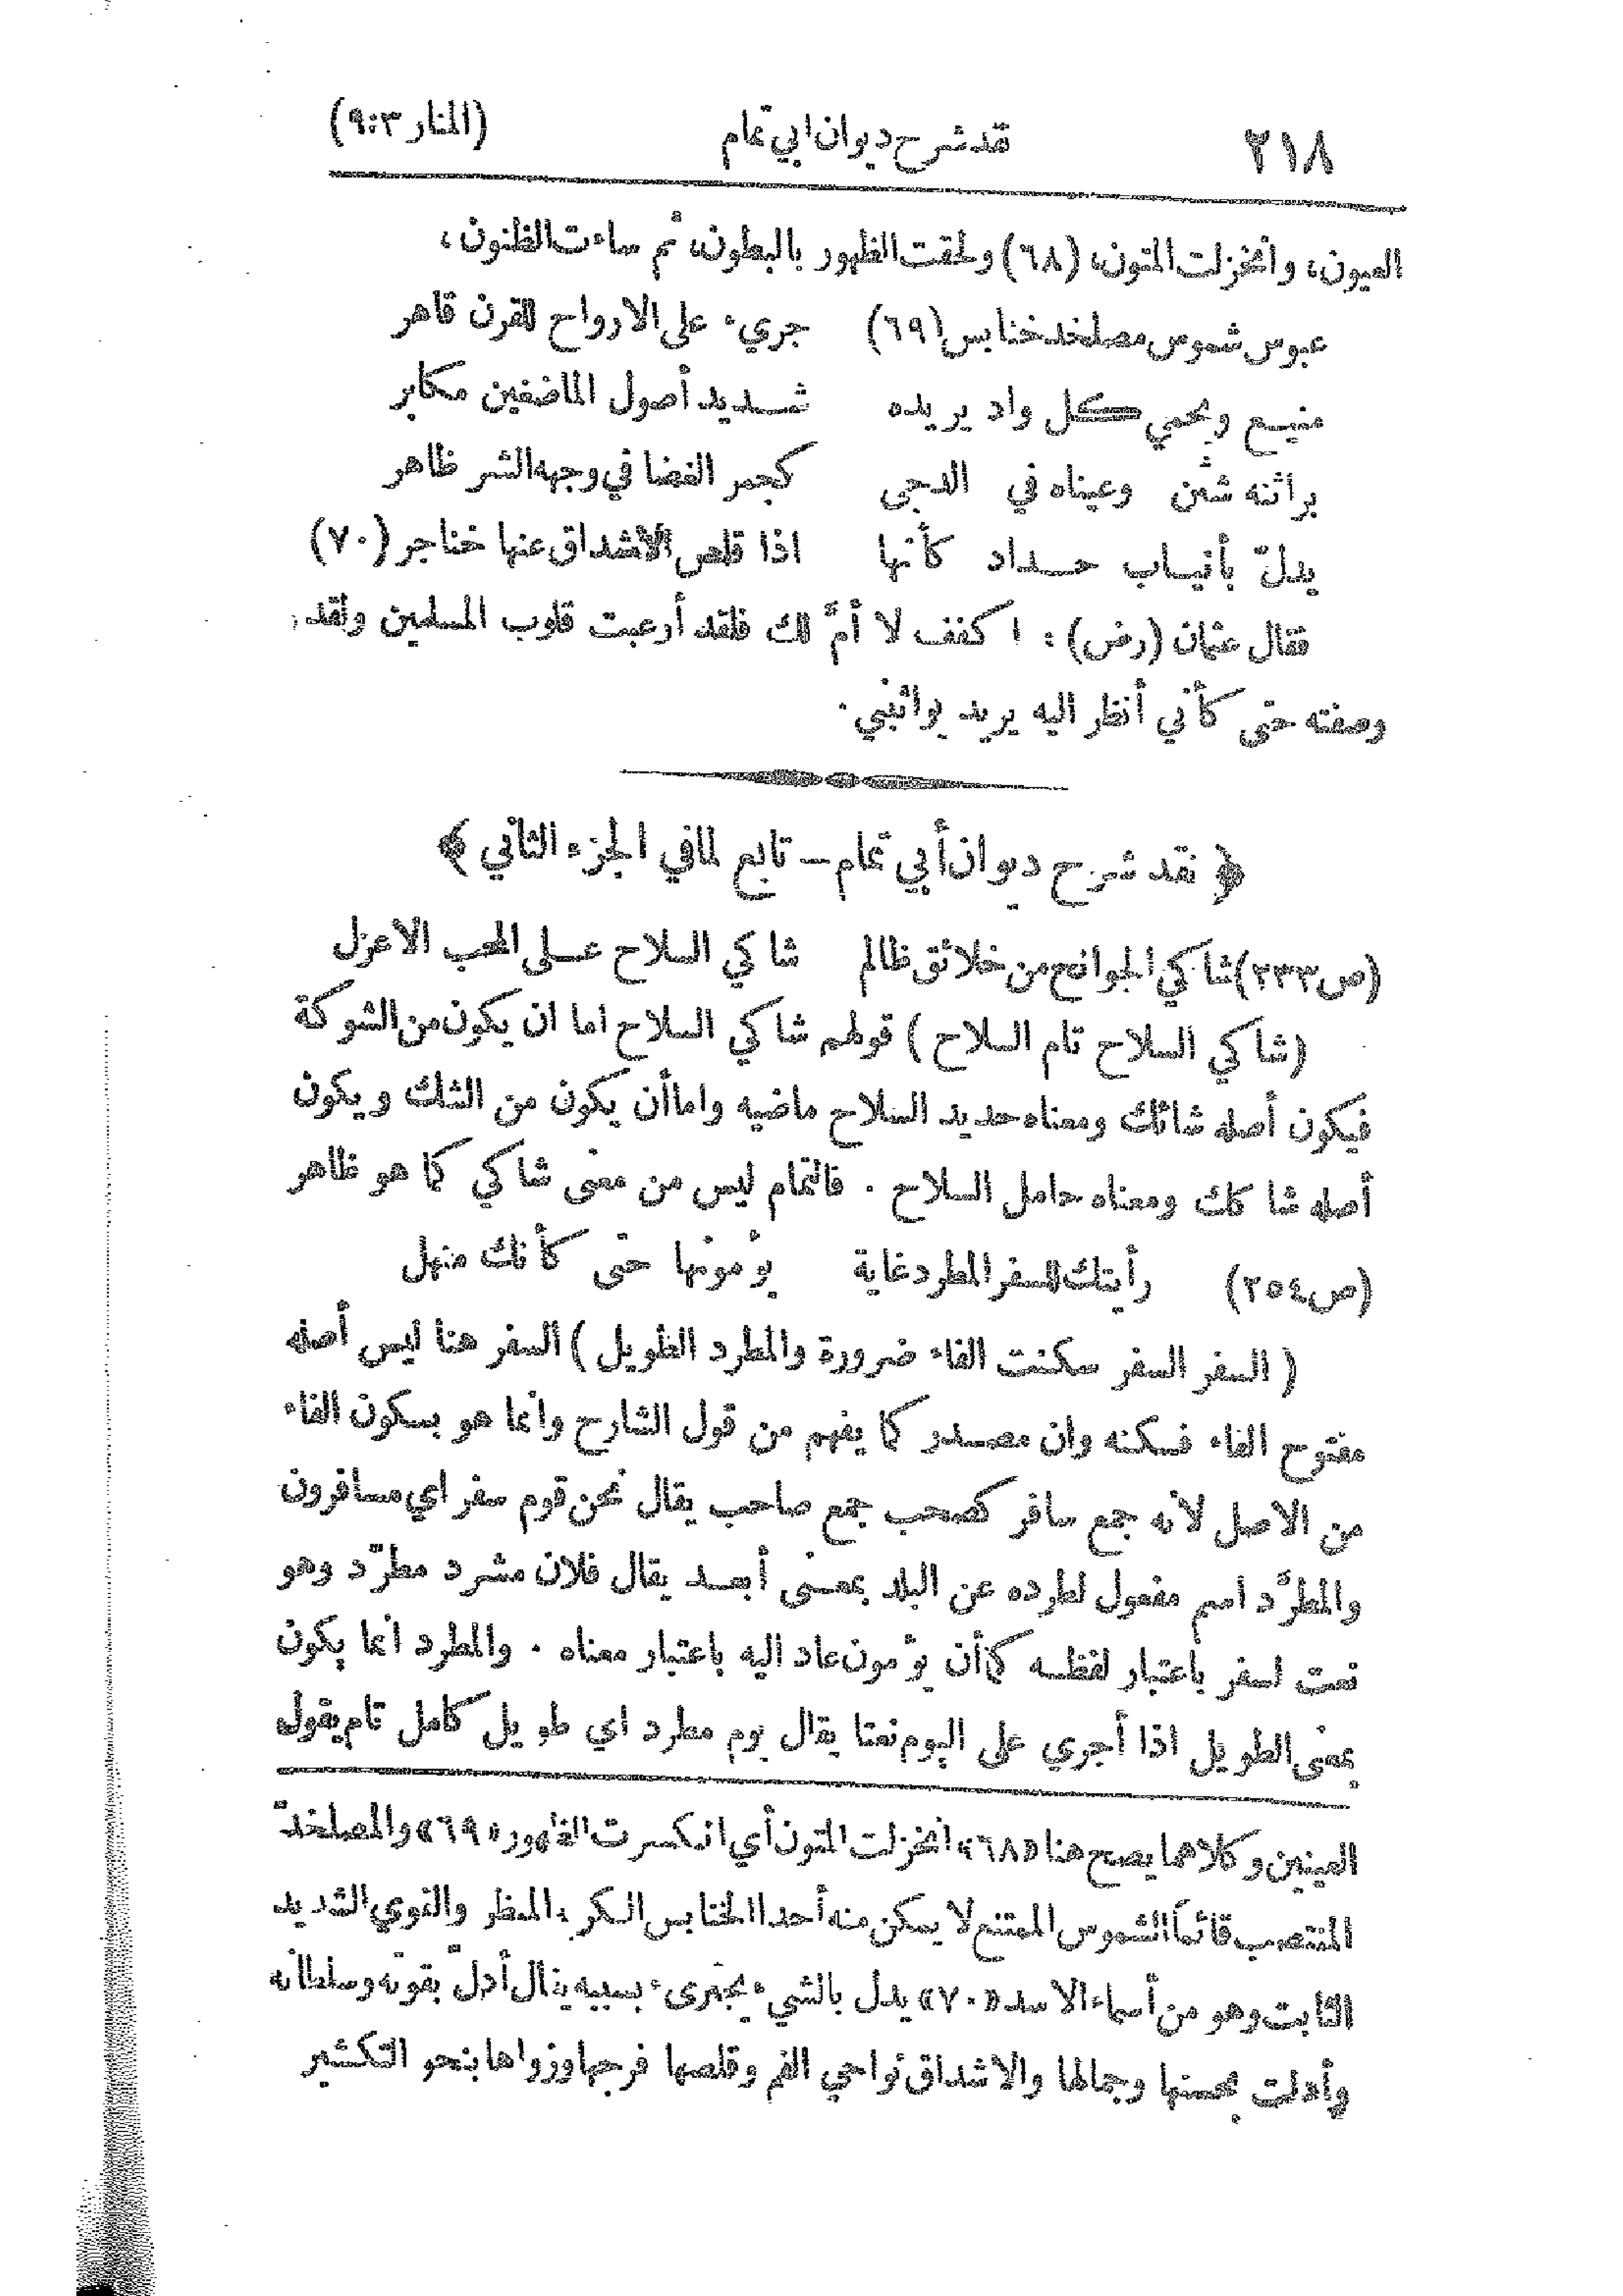 ٢١٨ نقد شرح ديوان ابي تمام (المنار ٩:٣)
العيون، وانخزلت المتون، (٦٨) ولحقت الظهور بالبطون، ثم ساءت الظنون،
عبوس شموس مصلخد خنابس (٦٩) جريء على الارواح للقرن قاهر
منيع ويحمي كل واد يريده شديد أصول الماضغين مكابر
براثنه شثن وعيناه في الدجى كجمر الغضا في وجهه الشر ظاهر
يدلّ بأنياب حداد كأنها اذا قلص الأشداق عنها خناجر (٧٠)
فقال عثمان (رض): اكفف لا أمَّ لك فلقد أرعبت قلوب المسلمين ولقد
وصفته حتى كأني أنظر اليه يريد يواثبني.
﴿ نقد شرح ديوان أبي تمام — تابع لما في الجزء الثاني ﴾
(ص٢٣٣) شاكي الجوانح من خلائق ظالم شاكي السلاح على المحب الاعزل
(شاكي السلاح تام السلاح) قولهم شاكي السلاح اما ان يكون من الشوكة
فيكون أصله شائك ومعناه حديد السلاح ماضيه واما أن يكون من الشك ويكون
أصله شاكك ومعناه حامل السلاح. فالتمام ليس من معنى شاكي كما هو ظاهر
(ص٢٥٤) رأيتك للسفر المطرد غاية يؤمونها حتى كأنك منهل
(السفر السفر سكنت الفاء ضرورة والمطرد الطويل) السفر هنا ليس أصله
مفتوح الفاء فسكنه وان مصدر كما يفهم من قول الشارح وانما هو بسكون الفاء
من الاصل لأنه جمع سافر كصحب جمع صاحب يقال نحن قوم سفر اي مسافرون
والمطرَّد اسم مفعول لطرده عن البلد بمعنى أبعد يقال فلان مشرد مطرّد وهو
نعت لسفر باعتبار لفظه كما أن يؤمون عاد اليه باعتبار معناه. والمطرد انما يكون
بمعنى الطويل اذا أجري على اليوم نعتا يقال يوم مطرد اي طويل كامل تام يقول
العينين وكلاهما يصح هنا «٦٨» انخزلت المتون أي انكسرت الظهور «٦٩» والمصلخدّ
المنتصب قائماً الشموس الممتنع لا يمكن منه أحدا الخنابس الكريه المنظر والقوي الشديد
الثابت وهو من أسماء الاسد «٧٠» يدل بالشيء يجترىء بسببه يقال أدلّ بقوته وسلطانه
وأدلت بحسنها وجمالها والاشداق نواحي الفم وقلصها فرجها وزواها بنحو التكشير